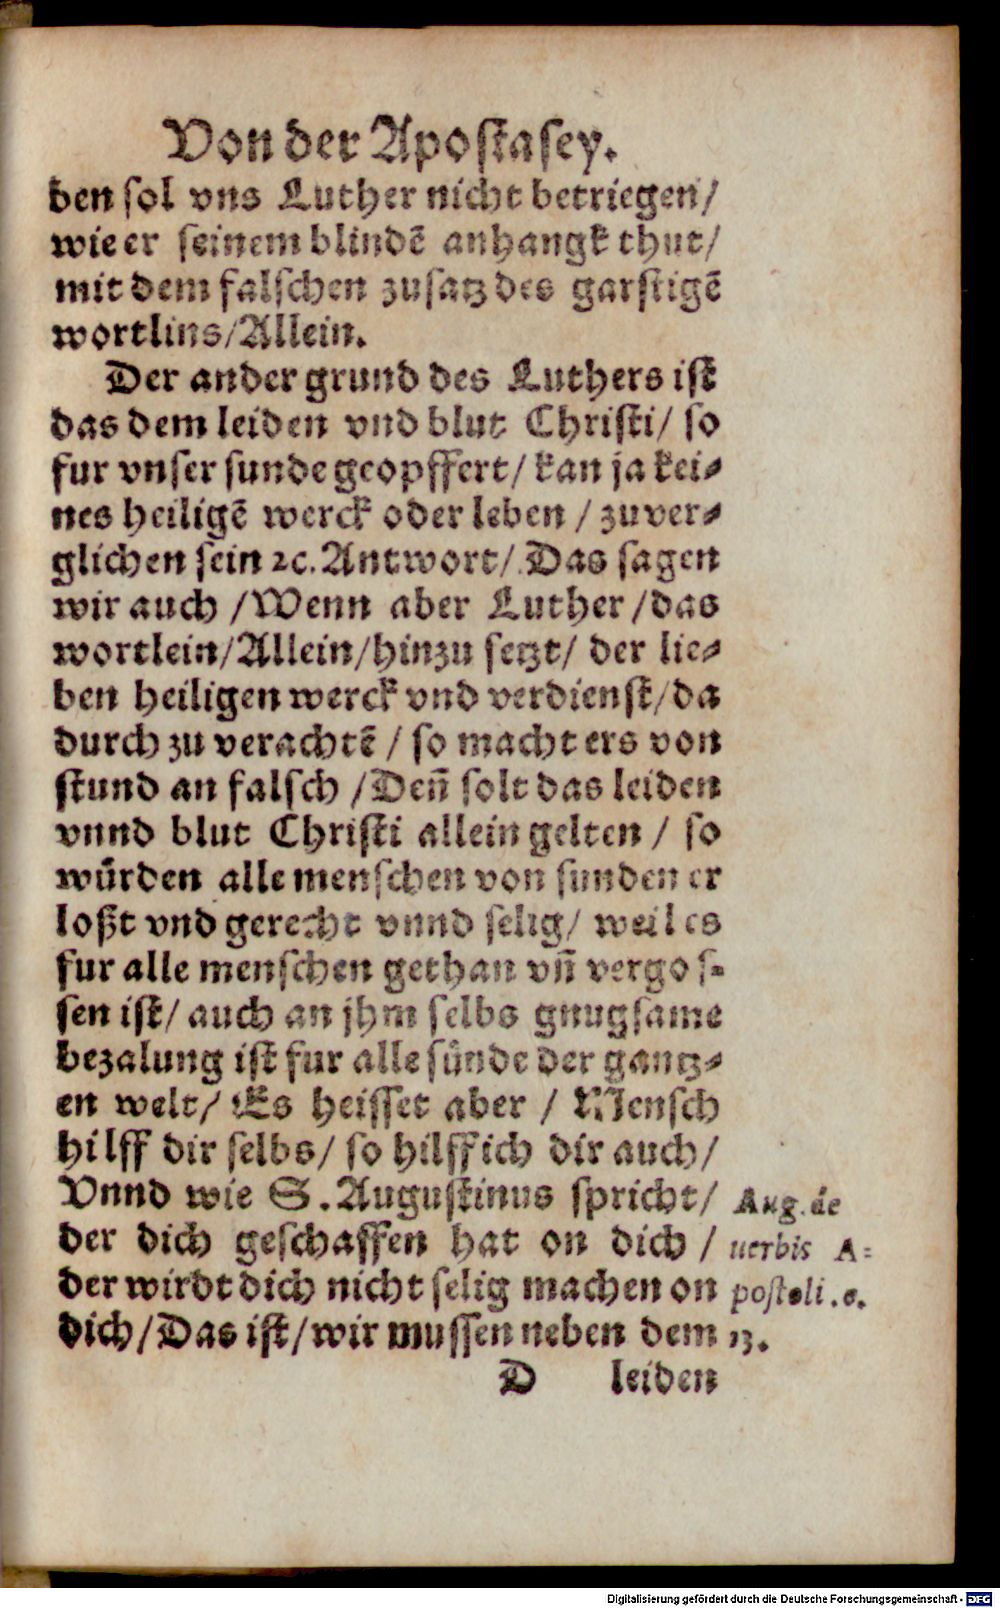 Von der Apostasey.
den sol vns Luther nicht betriegen/
wie er seinem blindẽ anhangk thut/
mit dem falschen zusatz des garstigẽ
wortlins/Allein.
Der ander grund des Luthers ist
das dem leiden vnd blut Christi/ so
fur vnser sunde geopffert/ kan ja kei⸗
nes heiligẽ werck oder leben / zuuer⸗
glichen sein ꝛc. Antwort/ Das sagen
wir auch /Wenn aber Luther /das
wortlein/Allein/hinzu setzt/ der lie⸗
ben heiligen werck vnd verdienst/da
durch zu verachtẽ / so macht ers von
stund an falsch /Deñ solt das leiden
vnnd blut Christi allein gelten / so
wuͤrden alle menschen von sunden er
loßt vnd gerecht vnnd selig/ weil es
fur alle menschen gethan vñ vergos⸗
sen ist/ auch an jhm selbs gnugsame
bezalung ist fur alle suͤnde der gantz⸗
en welt/ Es heisset aber / Mensch
hilff dir selbs/ so hilff ich dir auch/
Vnnd wie S. Augustinus spricht/
der dich geschaffen hat on dich /
der wirdt dich nicht selig machen on
dich/Das ist/wir mussen neben dem
Aug. de
uerbis A⸗
postoli. s.
13.
D leiden
Digitalisierung gefördert durch die Deutsche Forschungsgemeinschaft - DFG